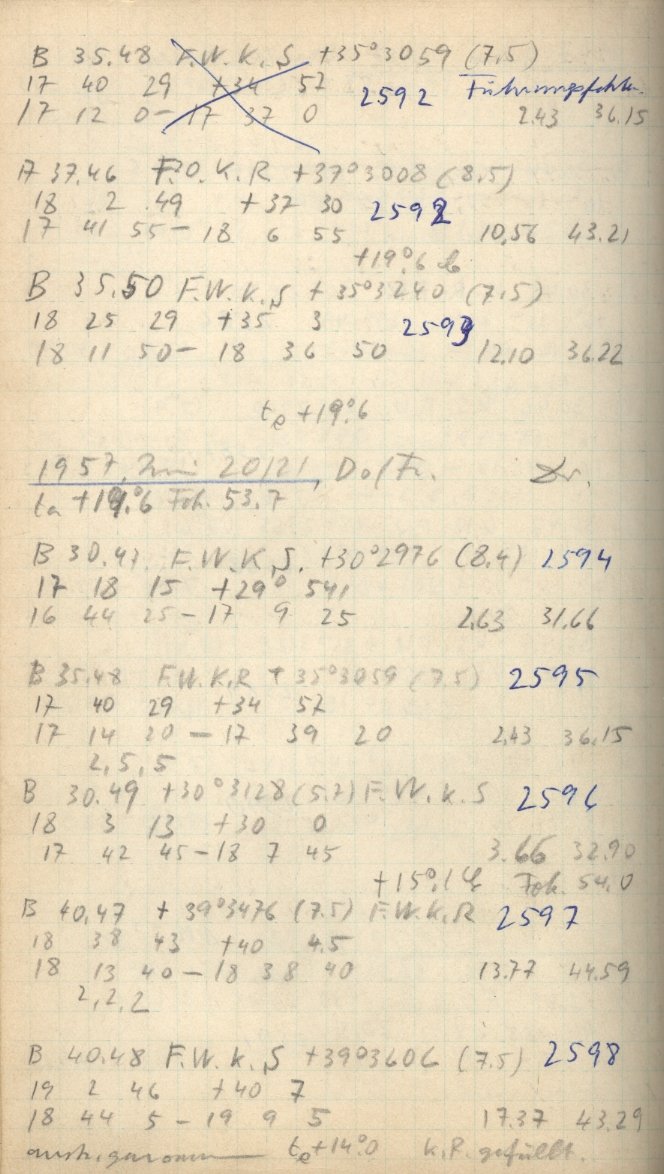 B 35.48 F.W.K.S +35°3059 (7.5)
17 40 29 +34 52 2592 Führungsfehler
17 12 0 – 17 37 0 2.43 36.15
A 37.46 F.O.K.R +37°3008 (8.5)
18 2 49 +37 30 2592
17 41 55 – 18 6 55 10.56 43.21
+19°.6
B 35.50 F.W.K.S +35°3240 (7.5)
18 25 29 +35 3 2593
18 11 50 – 18 36 50 12.10 36.22
te +19°.6
1957, Juni 20/21, Do/Fr.
ta +19°.6 Fok. 53.7
B 30.47 F.W.K.S. +30°2976 (8.4) 2594
17 18 15 +29° 541
16 44 25 – 17 9 25 2.63 31.66
B 35.48 F.W.K.R +35°3059 (7.5) 2595
17 40 29 +34 52
17 14 20 – 17 39 20 2.43 36.15
2,5,5
B 30.49 +30°3128 (5.2) F.W.K.S 2596
18 3 13 +30 0
17 42 45 – 18 7 45 3.66 32.90
+15°.1 Fok. 54.0
B 40.47 +39°3476 (7.5) F.W.K.R 2597
18 38 43 +40 4.5
18 13 40 – 18 38 40 13.77 44.59
2,2,2
B 40.48 F.W.K.S +39°3606 (7.5) 2598
19 2 46 +40 7
18 44 5 – 19 9 5 17.37 43.29
te +14°.0 K.R. gefüllt.